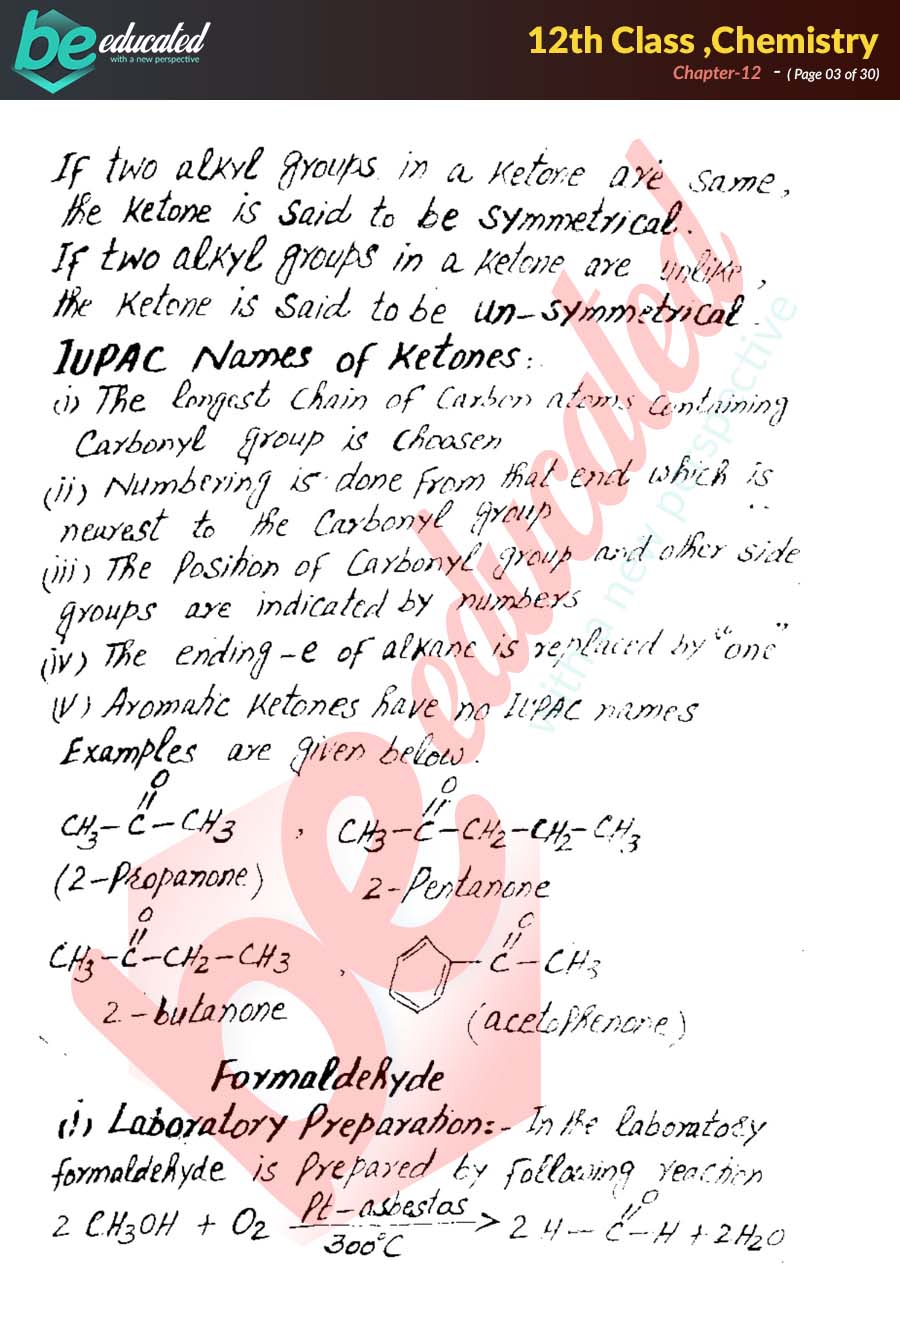 be educated
with a new perspective
12th Class ,Chemistry
Chapter-12 - ( Page 03 of 30)
If two alkyl groups in a Ketone are same,
the Ketone is said to be symmetrical.
If two alkyl groups in a Ketone are unlike,
the Ketone is said to be un-symmetrical.
IUPAC Names of Ketones:
(i) The longest chain of Carbon atoms containing
Carbonyl group is choosen
(ii) Numbering is done from that end which is
nearest to the Carbonyl group
(iii) The Position of Carbonyl group and other side
groups are indicated by numbers
(iv) The ending -e of alkane is replaced by "one"
(V) Aromatic Ketones have no IUPAC names
Examples are given below.
O O
CH3-C-CH3 , CH3-C-CH2-CH2-CH3
(2-Propanone) 2-Pentanone
O O
CH3-C-CH2-CH3 , C-CH3
2-butanone (acetophenone)
Formaldehyde
(i) Laboratory Preparation:- In the laboratory
formaldehyde is Prepared by following reaction
Pt-asbestos O
2 CH3OH + O2 > 2 H-C-H + 2H2O
300°C
be educated
with a new perspective